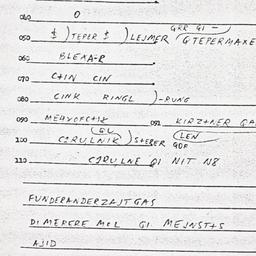 040 O
050 $ ) TEPER $ ) LEJMER ( GTEPERMAXE
060 BLEKA-R
070 C+IN CIN
080 CINK RINGL )-RUNG
090 091 KIRZ+NER GA
100 CIRULNIK ) S+EBER (LEN
GOF
110 CIRULNE QI NIT N8
FUNDERANDERZAJTGAS
DIMEKERE MOL GI MEJNST+S
AJID